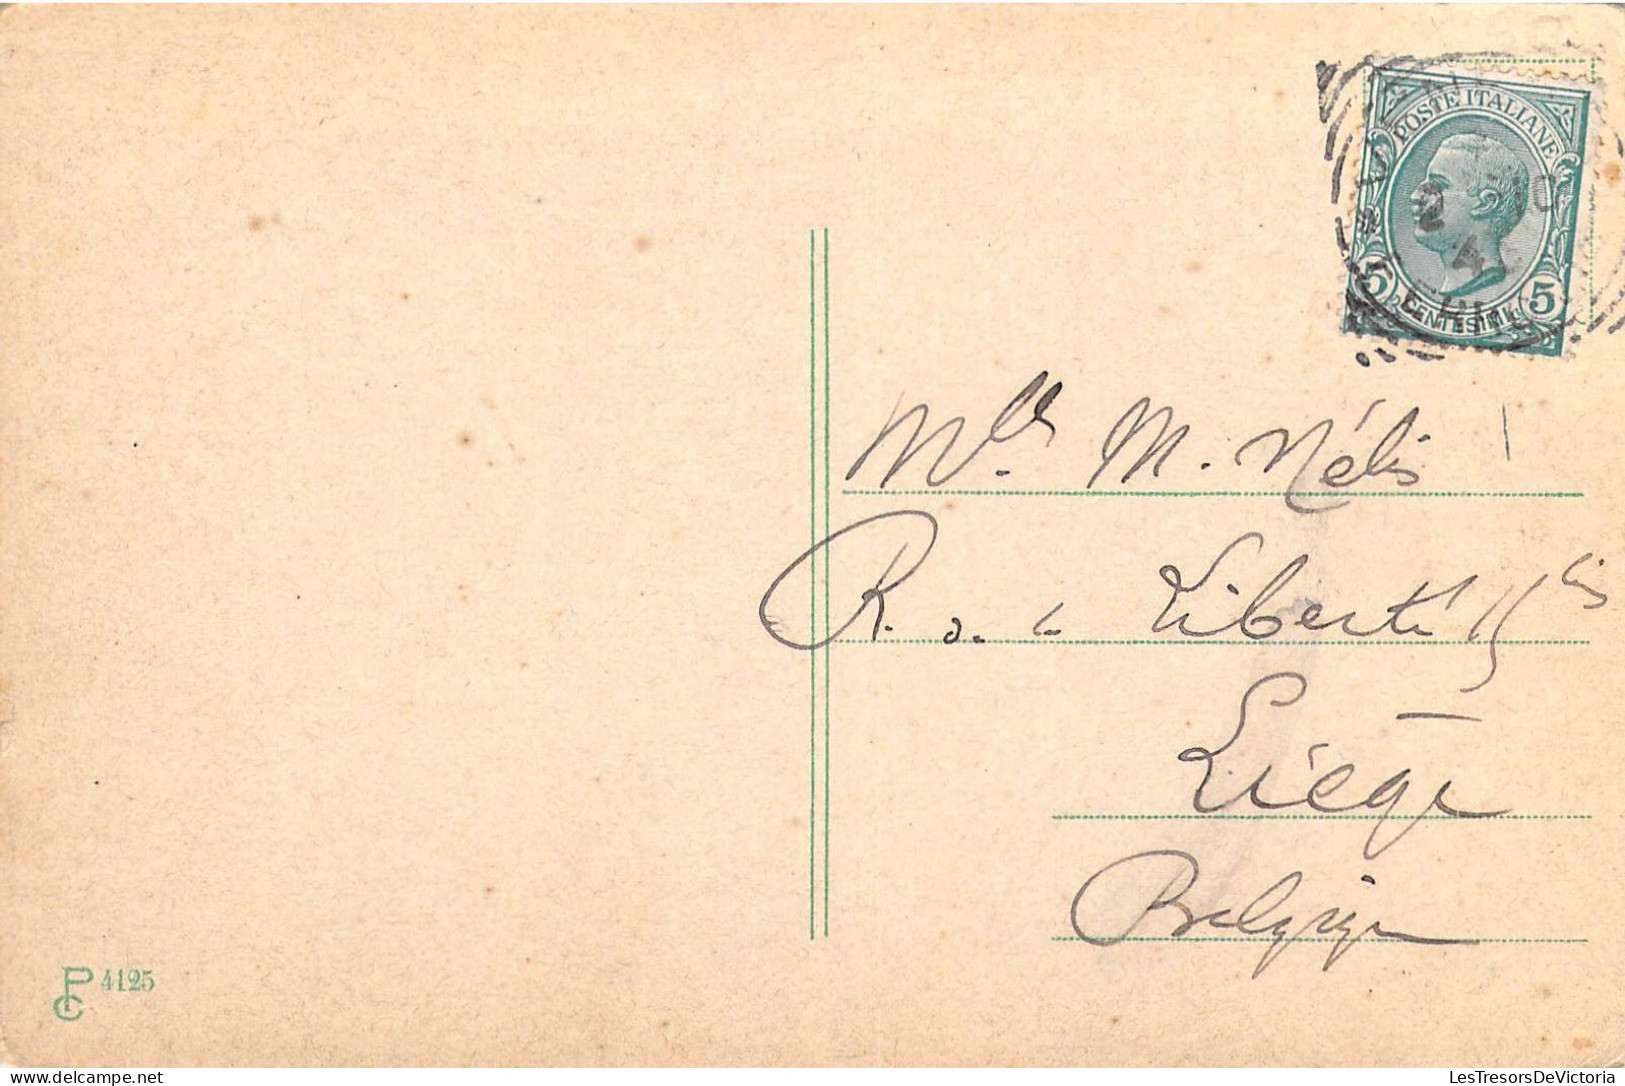 POSTE ITALIANE
5 CENTESIMI 5
Mlle. M. Nélis
R. d. l. Liberté 15
Liège
Belgique
PC 4125
LesTresorsDeVictoria